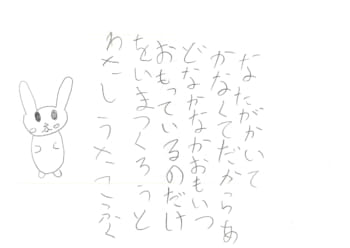 わたしうた
をいまつくろうと
おもっているのだけ
どなかなかおもいつ
かなくてだからあ
なたがかいて